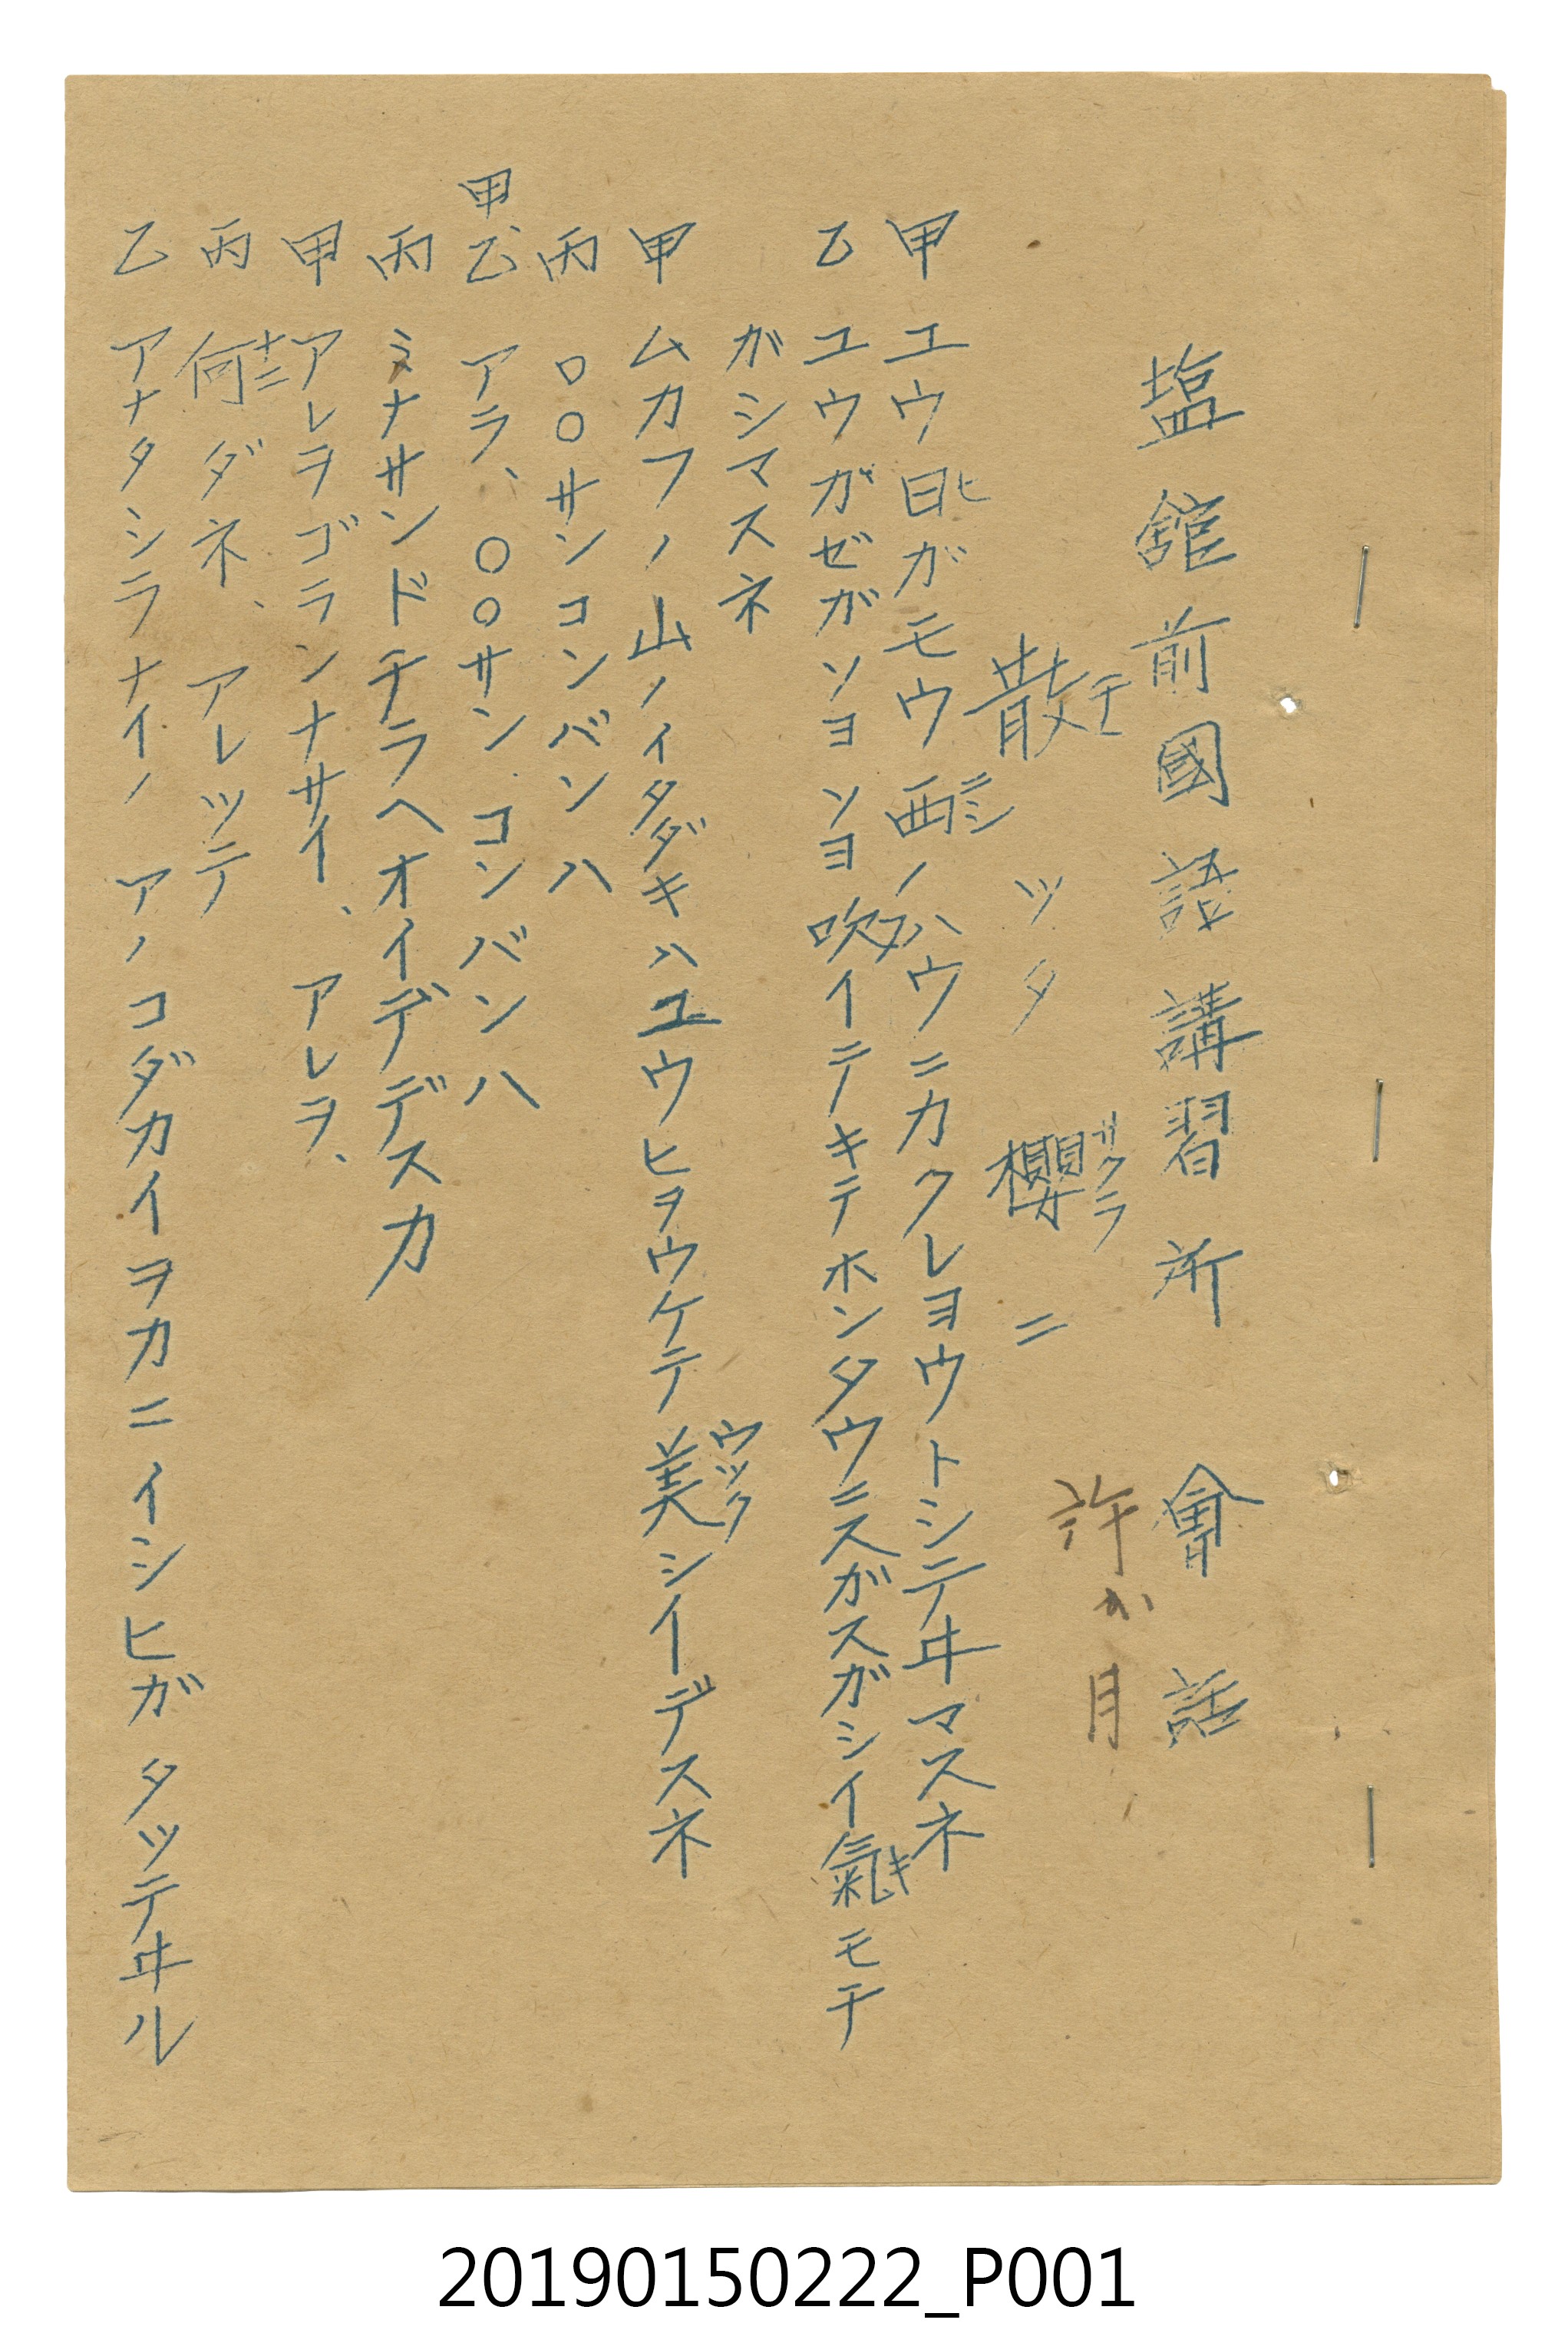 塩舘前國語講習所 會話
許か月
散ッタ櫻ニ
チ サクラ
甲 ユウ日ガモウ西ノハウニカクレヨウトシテヰマスネ
ヒ ニシ
乙 ユウガゼガソヨソヨ吹イテキテホンタウニスガスガシイ氣モチ
フ キ
ガシマスネ
甲 ムカフノ山ノイタダキハユウヒヲウケテ美シイデスネ
ウツク
丙 〇〇サンコンバンハ
甲、乙 アラ、〇〇サン コンバンハ
丙 ミナサンドチラヘオイデデスカ
甲 アレヲゴランナサイ、アレヲ、
丙 何ダネ、アレッテ
ナニ
乙 アナタシラナイノ アノコダカイヲカニイシヒガタッテヰル
20190150222_P001